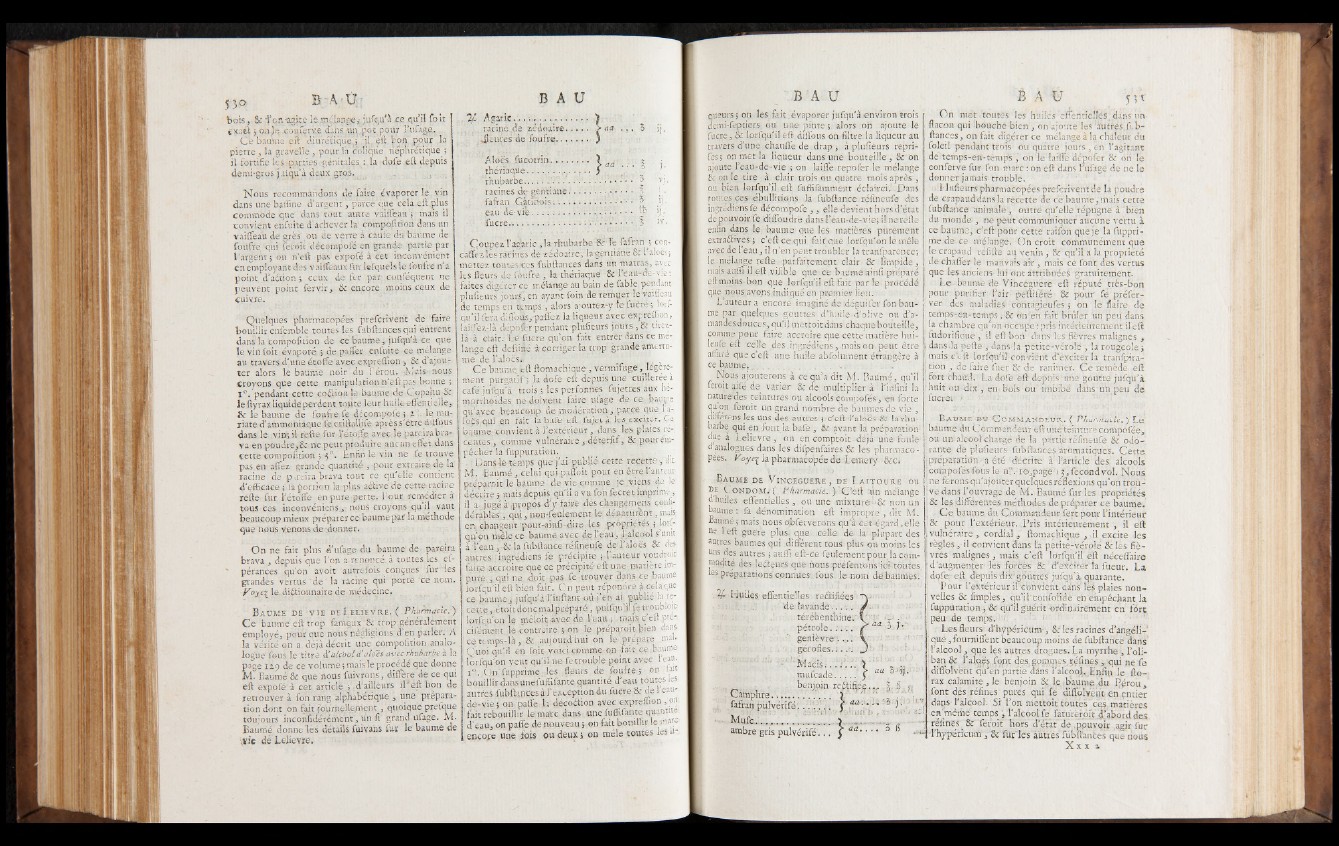 530
B A U
B A U
bois, & l'on agite le mélange, jusqu'à ce qu'il soit
exact ; on le conserve dans un pot pour l'usage.
Ce baume est diurétique ; il est bon pour la
pierre, la gravelle, pour la colique néphrétique ;
il fortifie les parties génitales : la dose est depuis
demi-gros jusqu'à deux gros.
Nous recommandons de faire évaporer le vin
dans une bassine d'argent, parce que cela est plus
commode que dans tout autre vaisseau ; mais il
convient ensuite d'achever la composition dans un
vaisseau de grès ou de verre à cause du baume de
soufre qui seroit décomposé en grande partie par
l'argent ; on n'est pas exposé à cet inconvénient
en employant des vaisseaux sur lesquels le soufre n'a
point d'action ; ceux de fer par conséquent ne
peuvent point servir, & encore moins ceux de
cuivre.
Quelques pharmacopées prescrivent de faire
bouillir ensemble toutes les substances qui entrent
dans la composition de ce baume, jusqu'à ce que
le vin soit évaporé ; de passer ensuite ce mélange
au travers d'une étoffe avec expression, & d'ajou-
ter alors le baume noir du Pérou. Mais nous
croyons que cette manipulation n'est pas bonne ;
1°. pendant cette coction le baume de Copahu &
le styrax liquide perdent toute leur huile essentielle,
& le baume de soufre se décompose ; 2°. le mu-
riate d'ammoniaque se cristallise après s'être dissous
dans le vin ; il reste sur l'étoffe avec le pareira bra-
va en poudre, & ne peut produire aucun effet dans
cette composition ; 3°. Enfin le vin ne se trouve
pas en assez grande quantité, pour extraire de la
racine de pareira brava tout ce qu'elle contient
d'efficace ; la portion la plus active de cette racine
reste sur l'étoffe en pure perte. Pour remédier à
tous ces inconvéniens, nous croyons qu'il vaut
beaucoup mieux préparer ce baume par la méthode
que nous venons de donner.
On ne fait plus d'usage du baume de pareira
brava, depuis que l'on a renoncé à toutes les es-
pérances qu'on avoit autrefois conçues sur les
grandes vertus de la racine qui porte ce nom.
Voyez le dictionnaire de médecine.
BAUME DE VIE DE LELIEVRE. ( Pharmacie. )
Ce baume est trop fameux & trop généralement
employé, pour que nous négligions d'en parler. A
la vérité on a déjà décrit une composition analo-
logue sous le titre d'alcohol d'aloès avec rhubarbe à la
page 129 de ce volume ; mais le procédé que donne
M. Baumé & que nous suivrons, diffère de ce qui
est exposé à cet article, d'ailleurs il est bon de
retrouver à son rang alphabétique, une prépara-
tion dont on fait journellement, quoique presque
toujours inconsidérément, un si grand usage. M.
Baumé donne les détails suivans sur le baume de
vie de Lelievre.
♃ Agaric...............
racine de zédoaire...... } aa ... ʒ ij.
fleurs de soufre.......
Aloès succotrin........
thériaque............. } aa ... ℥ j.
rhubarbe................... ʒ vj.
racines de gentiane.......
safran Gâtinois...........
eau de vie................ ℔ ij.
sucre..................... ℥ iv.
Coupez l'agaric, la rhubarbe & le safran ; con-
cassez les racines de zédoaire, la gentiane & l'aloès ;
mettez toutes ces substances dans un matras, avec
les fleurs de soufre, la thériaque & l'eau-de-vie :
faites digérer ce mélange au bain de sable pendant
plusieurs jours, en ayant soin de remuer le vaisseau
de temps en temps, alors ajoutez-y le sucre ; lors-
qu'il sera dissous, passez la liqueur avec expression,
laissez-la déposer pendant plusieurs jours, & tirez-
la à clair. Le sucre qu'on fait entrer dans ce mé-
lange est destiné à corriger la trop grande amertu-
me de l'aloès.
Ce baume est stomachique, vermifuge, légère-
ment purgatif ; la dose est depuis une cuillerée à
café jusqu'à trois ; les personnes sujettes aux hé-
morrhoïdes ne doivent faire usage de ce baume
qu'avec beaucoup de modération, parce que l'a-
loès qui en fait la base est sujet à les exciter. Ce
baume convient à l'extérieur, dans les plaies ré-
centes, comme vulnéraire, détersif, & pour em-
pêcher la suppuration.
Dans le temps que j'ai publié cette recette, dit
M. Baumé, celui qui passoit pour en être l'auteur
préparoit le baume de vie comme je viens de le
décrire ; mais depuis qu'il a vu son secret imprimé,
il a jugé à propos d'y faire des changemens consi-
dérables, qui, non-seulement le dénaturent, mais
en changent pour-ainsi-dire les propriétés ; lors-
qu'on mêle ce baume avec de l'eau, l'alcool s'unit
à l'eau, & la substance résineuse de l'aloès & des
autres ingrédiens se précipite ; l'auteur voudroit
faire accroire que ce précipité est une matière im-
pure, qui ne doit pas se trouver dans ce baume
lorsqu'il est bien fait. On peut répondre à cela que
ce baume, jusqu'à l'instant où j'en ai publié la re-
cette, étoit donc mal préparé, puisqu'il se troubloit
lorsqu'on le mêloit avec de l'eau ; mais c'est pré-
cisément le contraire ; on le préparoit bien dans
ce temps-là, & aujourd'hui on le prépare mal.
Quoi qu'il en soit voici comme on fait ce baume
lorsqu'on veut qu'il ne se trouble point avec l'eau.
1°. On supprime les fleurs de soufre ; on fait
bouillir dans une suffisante quantité d'eau toutes les
autres substances à l'exception du sucre & de l'eau-
de-vie ; on passe la décoction avec expression, on
fait rebouillir le marc dans une suffisante quantité
d'eau, on passe de nouveau ; on fait bouillir le marc
encore une fois ou deux ; on mêle toutes les li-
B A U
B A U
531
queurs ; on les fait évaporer jusqu'à environ trois
demi-septiers ou une pinte ; alors on ajoute le
sucre, & lorsqu'il est dissous on filtre la liqueur au
travers d'une chausse de drap, à plusieurs repri-
ses ; on met la liqueur dans une bouteille, & on
ajoute l'eau-de-vie ; on laisse reposer le mélange
& on le tire à clair trois ou quatre mois après,
ou bien lorsqu'il est suffisamment éclairci. Dans
toutes ces ébullitions la substance résineuse des
ingrédiens se décompose, elle devient hors d'état
de pouvoir se dissoudre dans l'eau-de-vie; il ne reste
enfin dans le baume que les matières purement
extractives ; c'est ce qui fait que lorsqu'on le mêle
avec de l'eau, il n'en peut troubler la transparence;
le mélange reste parfaitement clair & limpide,
mais aussi il est visible que ce baume ainsi préparé
est moins bon que lorsqu'il est fait par le procédé
que nous avons indiqué en premier lieu.
L'auteur a encore imaginé de déguiser son bau-
me par quelques gouttes d'huile d'olive ou d'a-
mandes douces, qu'il mettoit dans chaque bouteille,
comme pour faire accroire que cette matière hui-
leuse est celle des ingrédiens, mais on peut être
assuré que c'est une huile absolument étrangère à
ce baume.
Nous ajouterons à ce qu'a dit M. Baumé, qu'il
seroit aisé de varier & de multiplier à l'infini la
nature des teintures ou alcools composés, en sorte
qu'on feroit un grand nombre de baumes de vie,
différens les uns des autres ; c'est l'aloès & la rhu-
barbe qui en font la base, & avant la préparation
due à Lelievre, on en comptoit déjà une foule
d'analogues dans les dispensaires & les pharmaco-
pées. Voyez la pharmacopée de Lemery &c.
BAUME DE VINCEGUERE, DE LAITOURE ou
DE CONDOM. ( Pharmacie. ) C'est un mélange
d'huiles essentielles, ou une mixture & non un
baume : sa dénomination est impropre, dit M.
Baumé ; mais nous observerons qu'à cet égard, elle
ne l'est guère plus que celle de la plupart des
autres baumes qui diffèrent tous plus ou moins les
uns des autres ; aussi est-ce seulement pour la com-
modité des lecteurs que nous présentons ici toutes
les préparations connues sous le nom de baumes.
♃ Huiles essentielles rectifiées
de lavande.....
térébenthine.
pétrole...... } aa ʒ j.
genièvre :...
gerofles......
Macis........
muscade..... } aa ʒ ij.
benjoin rectifié...
Camphre.............
safran pulvérisé.......
Musc................
ambre gris pulvérisé... } aa.... ʒ ß
On met toutes les huiles essentielles dans un
flacon qui bouche bien, on ajoute les autres sub-
stances, on fait digérer ce mélange à la chaleur du
soleil pendant trois ou quatre jours, en l'agitant
de temps-en-temps, on le laisse déposer & on le
conserve sur son marc : on est dans l'usage de ne le
donner jamais trouble.
Plusieurs pharmacopées prescrivent de la poudre
de crapaud dans la recette de ce baume, mais cette
substance animale, outre qu'elle répugne à bien
du monde, ne peut communiquer aucune vertu à
ce baume, c'est pour cette raison que je la suppri-
me de ce mélange. On croit communément que
le crapaud résiste au venin, & qu'il a la propriété
de chasser le mauvais air, mais ce sont des vertus
que les anciens lui ont attribuées gratuitement.
Le baume de Vinceguere est réputé très-bon
pour purifier l'air pestiféré & pour se préser-
ver des maladies contagieuses ; on le flaire de
temps-en-temps, & on en fait brûler un peu dans
la chambre qu'on occupe : pris intérieurement il est
sudorifique, il est bon dans les fièvres malignes,
dans la peste, dans la petite-vérole, la rougeole ;
mais c'est lorsqu'il convient d'exciter la transpira-
tion, de faire suer & de ranimer. Ce remède est
fort chaud. La dose est depuis une goutte jusqu'à
huit ou dix, en bols ou imbibé dans un peu de
sucre.
BAUME DU COMMANDEUR. ( Pharmacie. ) Le
baume du Commandeur est une teinture composée,
ou un alcool chargé de la partie résineuse & odo-
rante de plusieurs substances aromatiques. Cette
préparation a été décrite à l'article des alcools
composés sous le n°. 10, page 13, second vol. Nous
ne ferons qu'ajouter quelques réflexions qu'on trou-
ve dans l'ouvrage de M. Baumé sur les propriétés
& les différentes méthodes de préparer ce baume.
Ce baume du Commandeur sert pour l'intérieur
& pour l'extérieur. Pris intérieurement, il est
vulnéraire, cordial, stomachique, il excite les
règles, il convient dans la petite-vérole & les fiè-
vres malignes, mais c'est lorsqu'il est nécessaire
d'augmenter les forces & d'exciter la sueur. La
dose est depuis dix gouttes jusqu'à quarante.
Pour l'extérieur il convient dans les plaies nou-
velles & simples, qu'il consolide en empêchant la
suppuration, & qu'il guérit ordinairement en fort
peu de temps.
Les fleurs d'hypéricum, & les racines d'angéli-
que, fournissent beaucoup moins de substance dans
l'alcool, que les autres drogues. La myrrhe, l'oli-
ban & l'aloès sont des gommes résines, qui ne se
dissolvent qu'en partie dans l'alcool. Enfin le sto-
rax calamite, le benjoin & le baume du Pérou,
sont des résines pures qui se dissolvent en entier
dans l'alcool. Si l'on mettoit toutes ces matières
en même temps, l'alcool se satureroit d'abord des
résines & seroit hors d'état de pouvoir agir sur
l'hypéricum, & sur les autres substances que nous
X x x 2